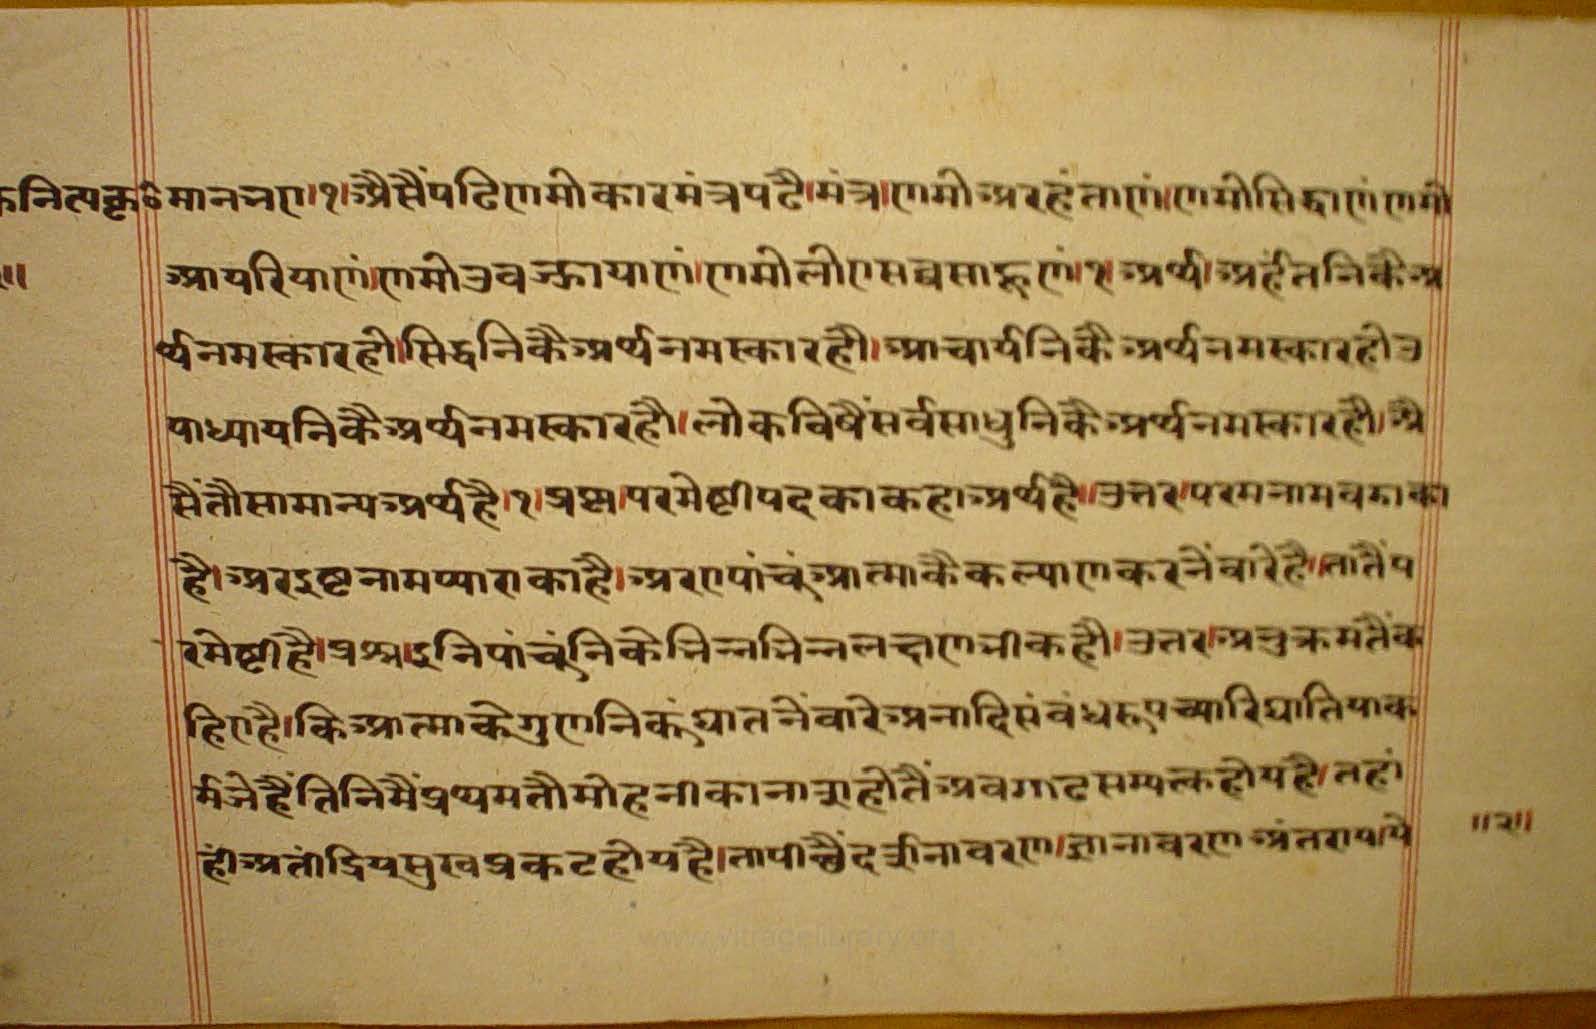 मानतए।१। अैसैं पढि णमोकारमंत्र पढै। मंत्र। णमो अरहंताणं। णमो सिद्धाणं णमो
आयरियाणं। णमो उवज्झायाणं। णमो लोए सव्वसाहूणं।१। अर्थ। अर्हंतनिकै अ
र्थ नमस्कार हो। सिद्धनिकै अर्थ नमस्कार हौ। आचार्यनिकै अर्थ नमस्कार हो उ
पाध्यायनिकै अर्थ नमस्कार हौ। लोकविषैं सर्वसाधुनिकै अर्थ नमस्कार हौ। अै
सैं तौ सामान्य अर्थ है।१। प्रष्ण। परमेष्टी पद का कहा अर्थ है। उत्तर। परम नाम वडा का
है। अर इष्ट नाम प्यारा का है। अर ए पांचूं आत्मा कै कल्याण करनें वारे है। तातैं प
रमेष्टी है। प्रश्न। इनि पांचूंनि के भिन्न भिन्न लक्षण भी कहौ। उतर। अनुक्रमतैं क
हिए है। कि आत्मा के गुणनिकूं घातनें वारे अनादि संबंधरूप च्यारि घातिया क
र्म जे हैं तिनिमैं प्रथम तौ मोहनी का नाश होतैं अवगाढ सम्यत्क होय है। तहां
हीं अतींद्रिय सुख प्रकट होय है। ता पीछैं दर्शनावरण। ज्ञानावरण अंतराय। ये
॥२॥